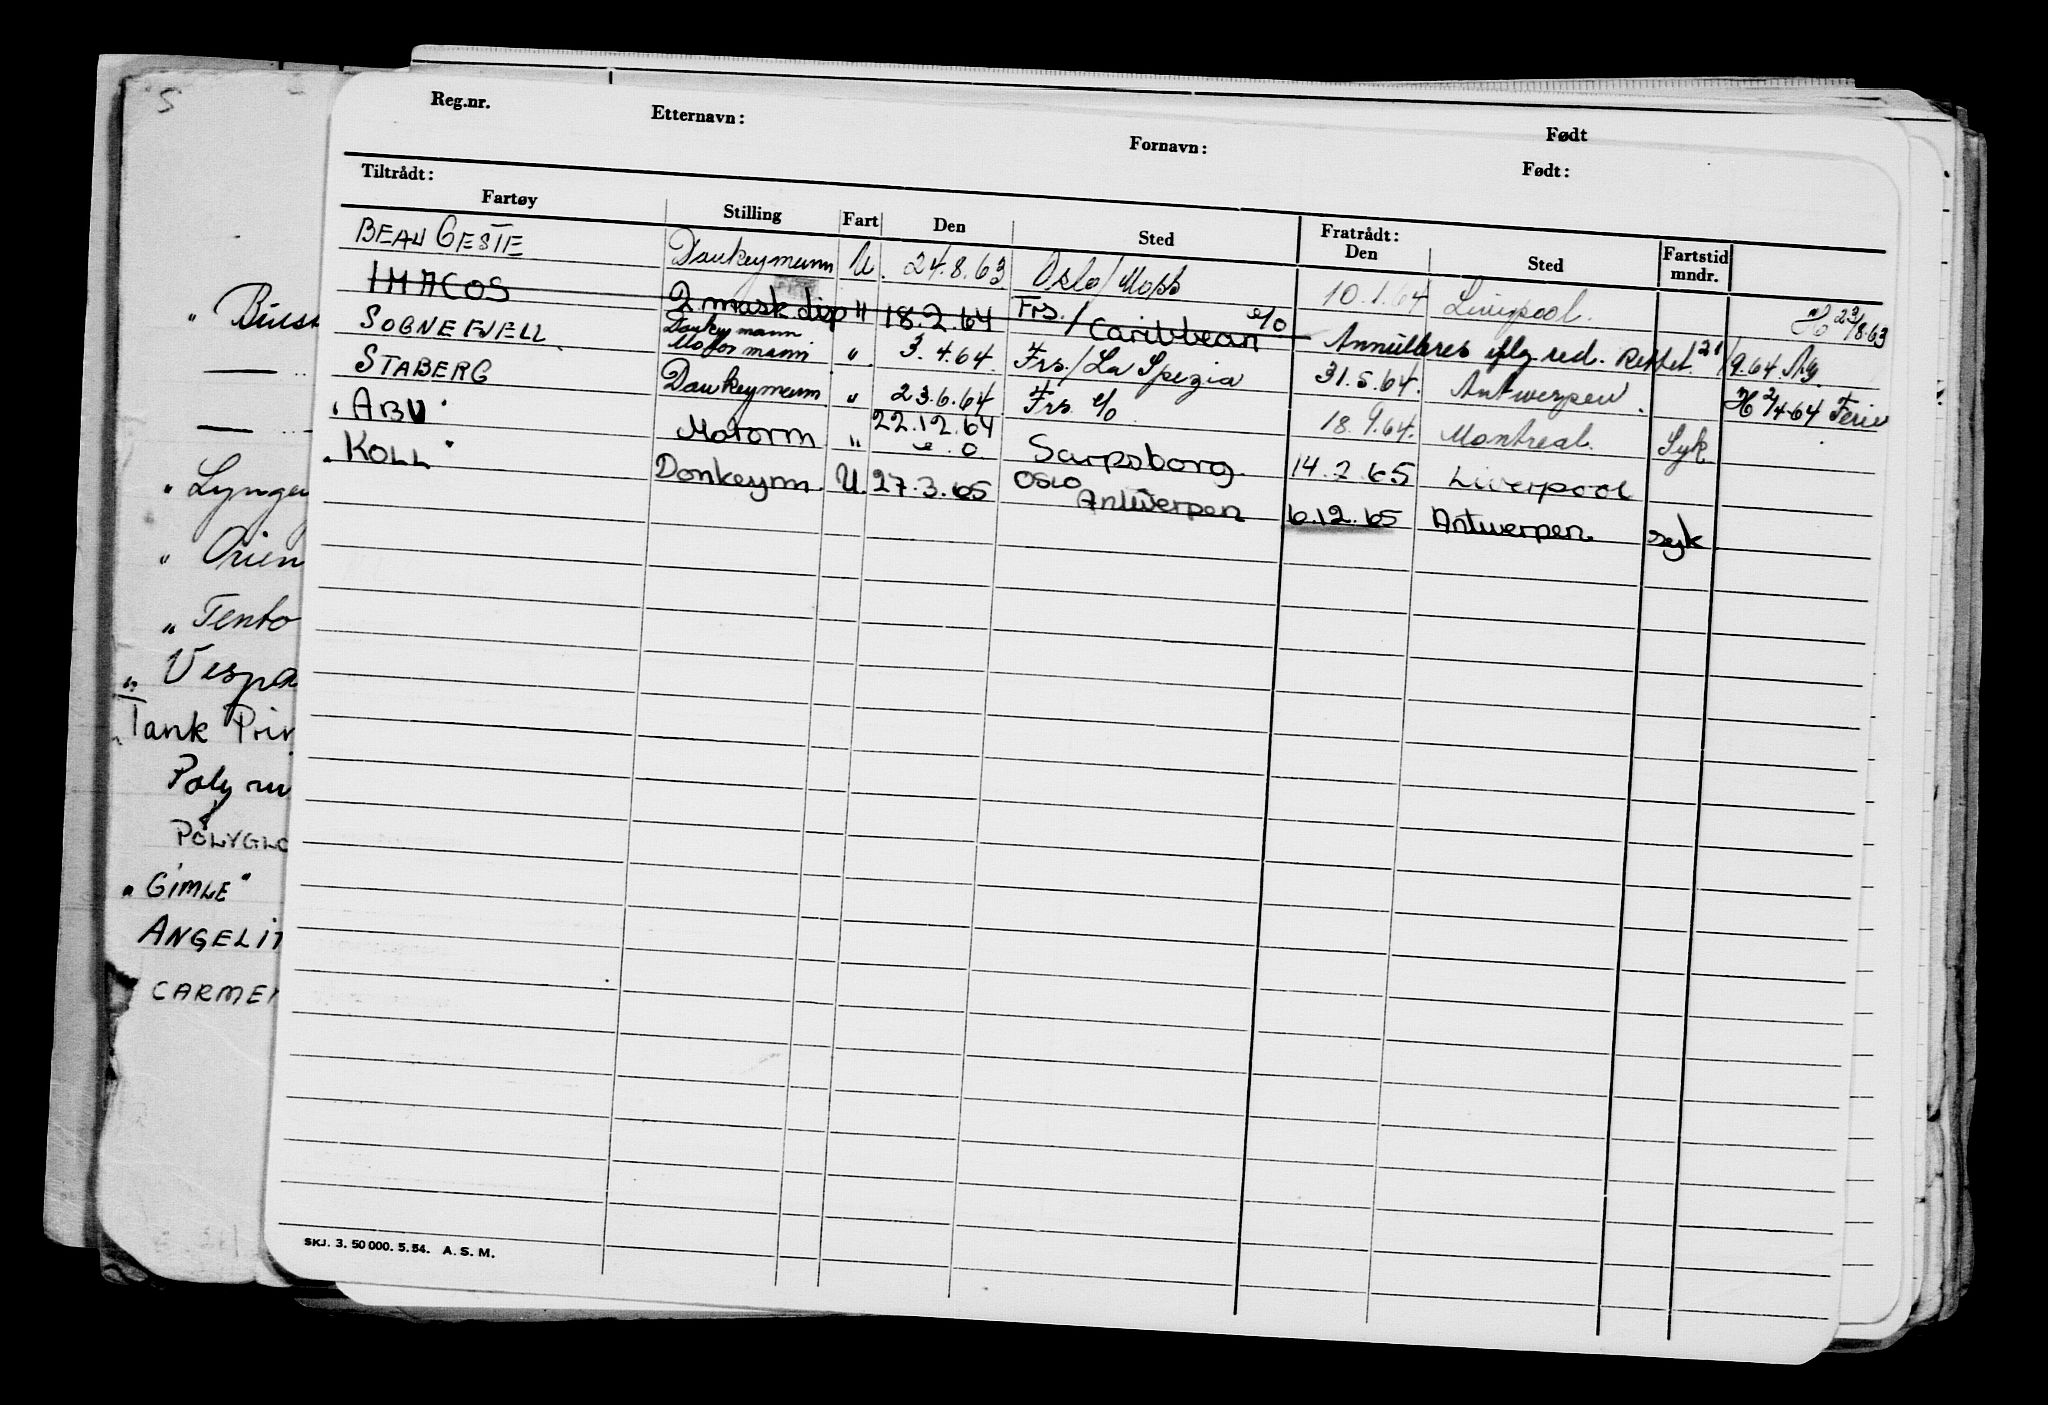 S
„ Lyngen
„ Orien
„ Tento
„ Vespa
Tank Prin
POLYGLO
„ GIMLE "
ANGELIT
CARMEN
Reg.nr. Etternavn: Fornavn: Født
Tiltrådt: Født:
Fartøy Stilling Fart Den Sted Fratrådt: Den Sted Fartstid mndr.
BEAU GESTE Donkeymann U. 24.8.63 Oslo/Moss 10.1.64 Liverpool. H 23/8.63
IMACOS 2 mask disp " 18.2.64 Frs./Caribbean e/o Annulleres iflg. red. 21/9.64
SOGNEFJELL Donkeymann Motormann " 3.4.64. Frs./La Spezia 31.5.64. Antwerpen. H 2/4-64 Ferie
STABERG Donkeymann " 23.6.64 Frs. e/o 18.9.64. Montreal. Syk
"ABU" Motorm " 22.12.64 e.o. Sarpsborg 14.2.65 Liverpool
"KOLL" Donkeym. U. 27.3.65 Oslo Antwerpen 6.12.65 Antwerpen. syk
SKJ. 3. 50 000. 5.54. A. S. M.